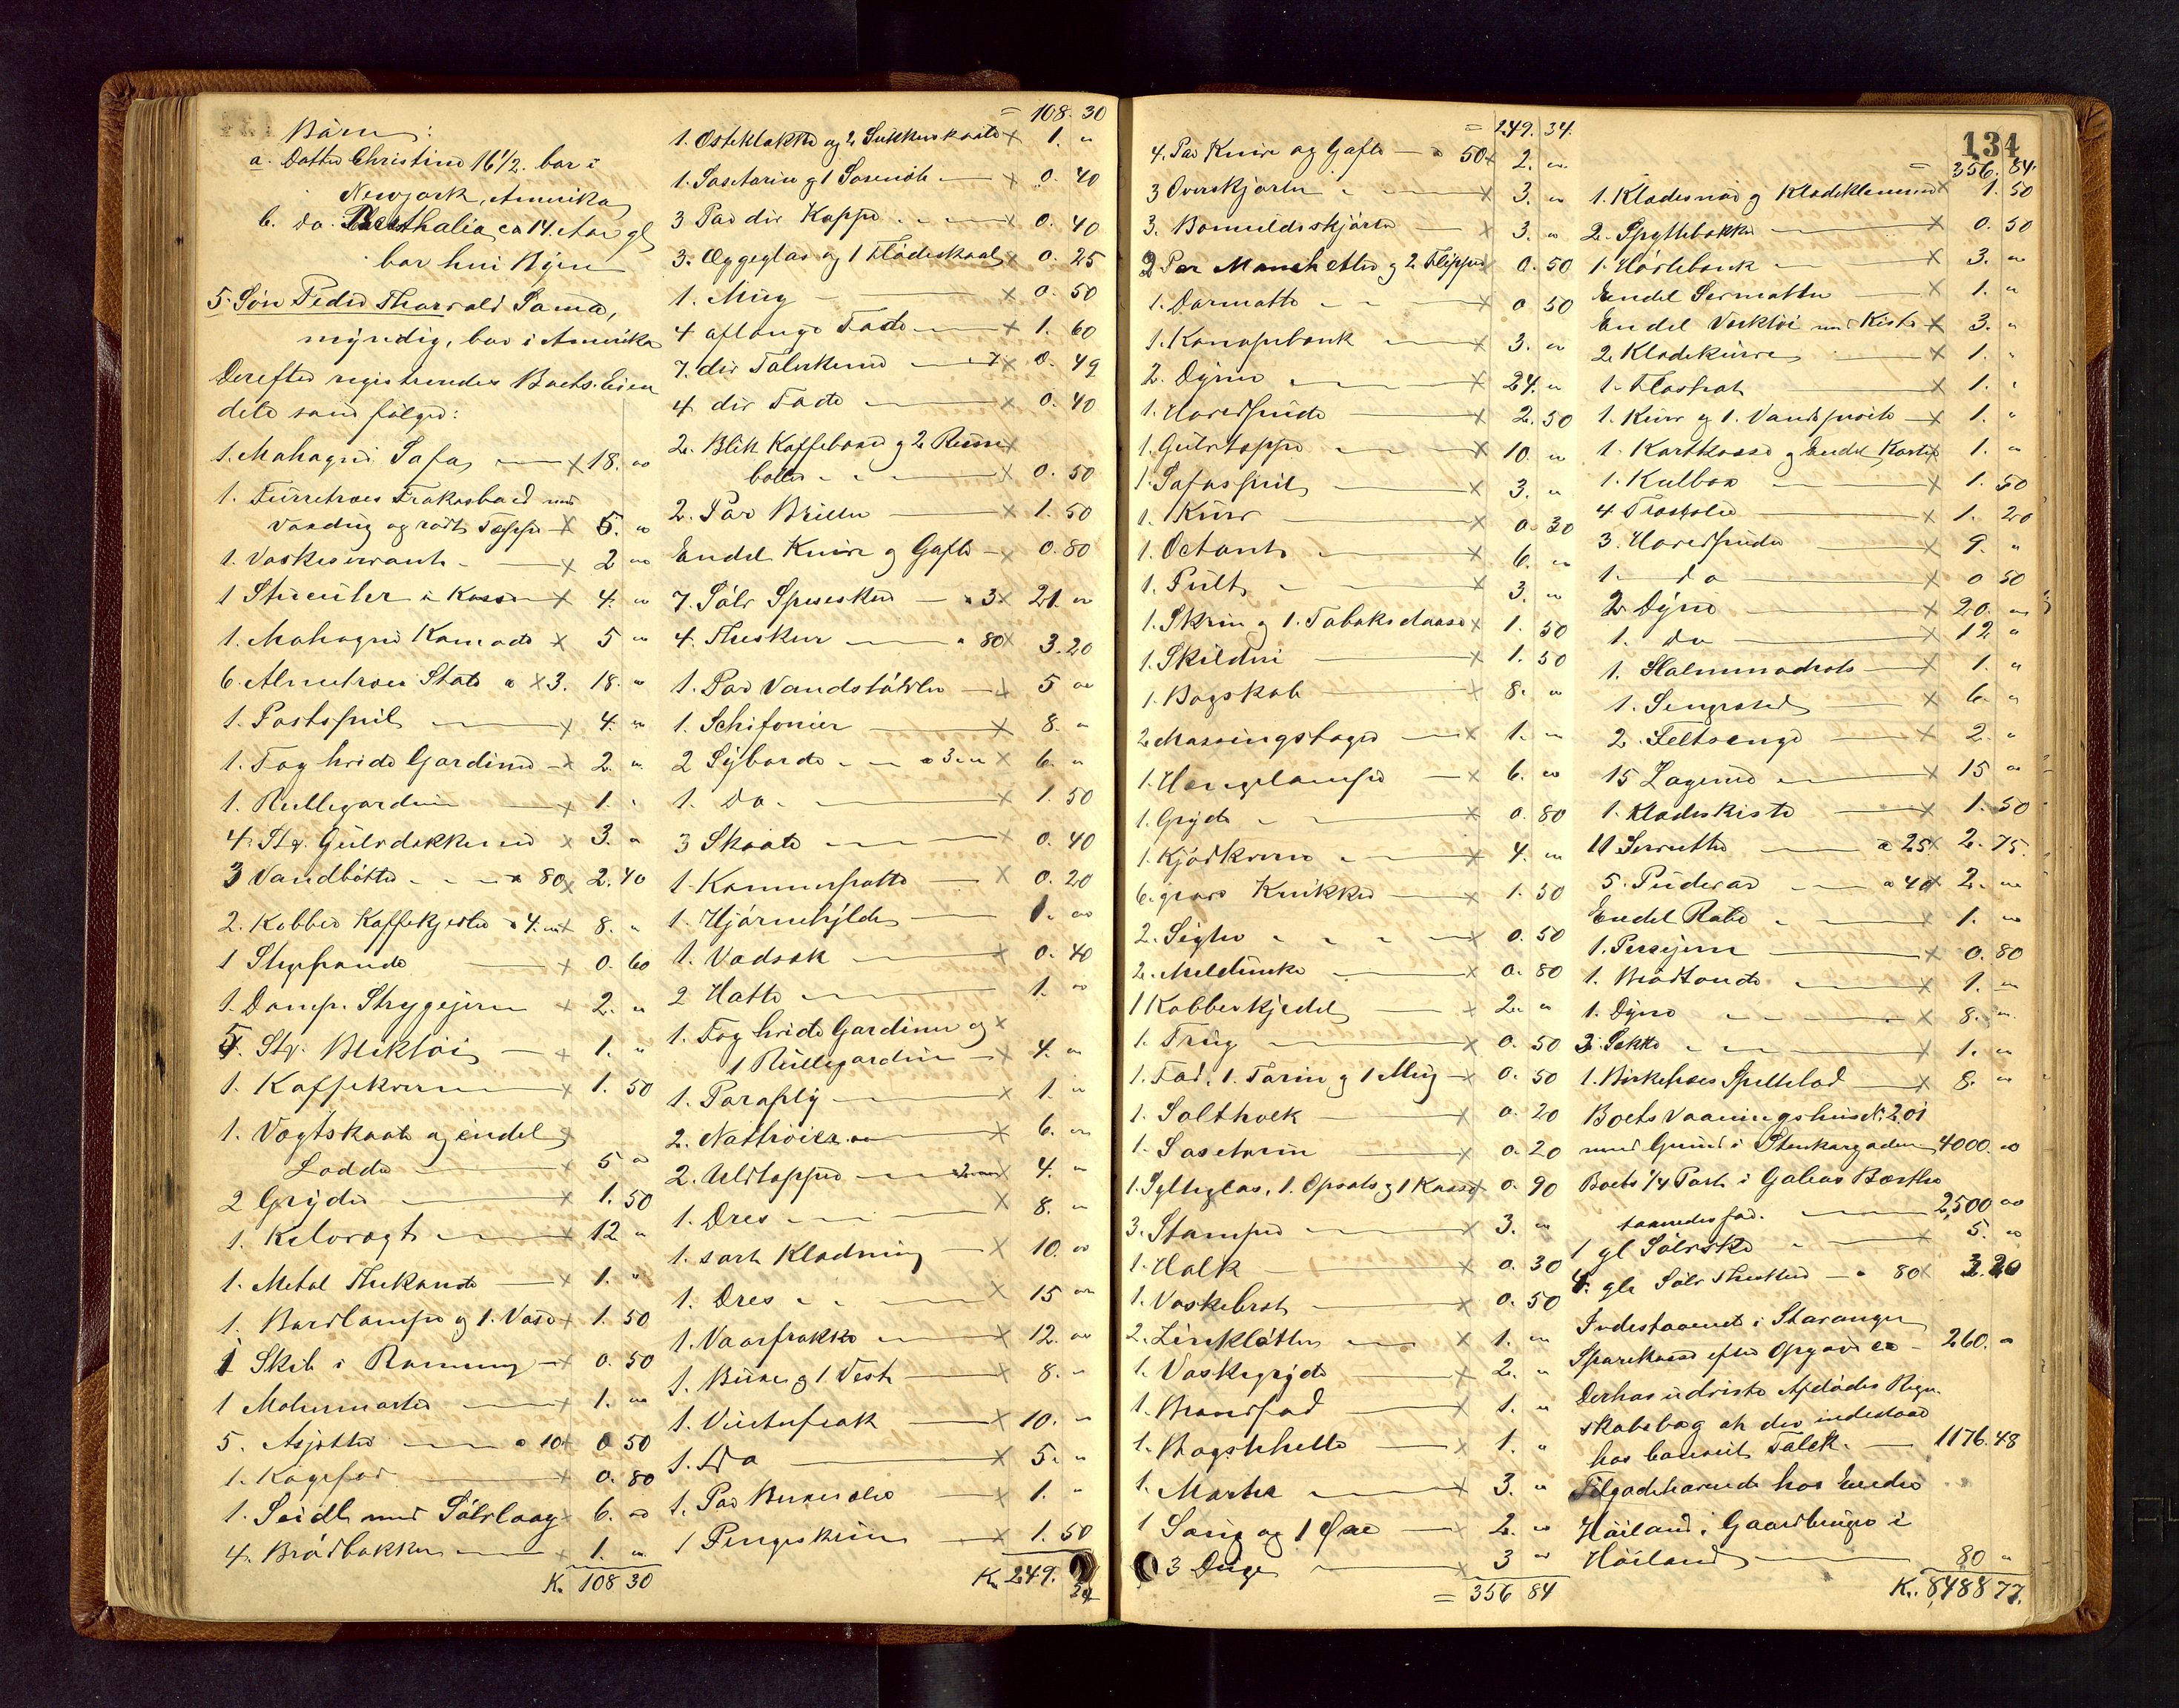 Børn:
a. Datter Christine 16 1/2. bor i
Newyork, Amerika
b. do. Berthalia, ca 14. Aar gl
bor her i Byen
5. Søn Peder Thorvald Sama,
myndig, bor i Amerika
Derefter registreredes Boets Eien
dele som følger:
1. Mahogni Sofa x 18. "
1. Furretræes Frokostbord med
Voxdug og rødt Tæppe x 5. "
1. Vaskeservante x 2 "
1 Stueuhr i Kasse x 4. "
1. Mahogni Komode x 5 "
6. Almetræes Stole a x 3. 18. "
1. Postspeil x 4. "
1. Fag hvide Gardiner x 2. "
1. Rullegardin x 1. "
4. Stk. Gulvdækkener x 3. "
3 Vandbøtter a 80 x 2. 40
2. Kobber Kaffekjedler a 4. " x 8. "
1 Stegepande x 0. 60
1. Damp. Strygejern x 2. "
5. Stk. Bliktøi x 1. "
1. Kaffekværn x 1. 50
1. Vægtskaal og endel
Lodder x 5 "
2 Gryder x 1. 50
1. Kilovægt x 12 "
1. Metal Thekande x 1. "
1. Bordlampe og 1. Vase x 1. 50
1 Skib i Ramme x 0. 50
1 Mahermorter x 1. "
5. Asjetter a 10 x 0 50
1. Kagefad x 0. 80
1. Seidl med Sølvlaag x 6. "
4. Brødbakker x 1. "
Kr. 108 30
= 108. 30
1. Osteklokke og 2 Sukkerskaale x 1. "
1. Sosetarin og 1 Soseøse x 0. 40
3 Par div Kopper x 0. 40
3. Æggeglas og 1 Flødeskaal x 0. 25
1. Mug x 0. 50
4 aflange Fade x 1. 60
7. div Talerkener a 7 x 0. 49
4 div Fade x 0. 40
2. Blik Kaffebøsser og 2 Rium x
boller x 0. 50
2. Par Briller x 1. 50
Endel Knive og Gafler x 0. 80
7. Sølv Spiseskeer a 3 x 21. "
4. Theskeer a 80 x 3. 20
1. Par Vandstøvler x 5 "
1. Schifonier x 8. "
2 Syborde a 3 " x 6. "
1. Do. x 1. 50
3 Skaale x 0. 40
1. Kammerpotte x 0. 20
1. Hjørnehylde 1. "
1. Vadsæk x 0. 40
2 Hatte 1. "
1. Fag hvide Gardiner og x
1 Rullegardin x 4. "
1. Paraply x 1. "
2. Nattrøier x 6. "
2. Uldtæpper a 2. " x 4. "
1. Dres x 8. "
1. sort Klædning x 10. "
1. Dres x 15 "
1. Vaarfrakke x 12. "
1. Buxe og 1 Vest x 8. "
1. Vinterfrak x 10. "
1. Do x 5. "
1. Par Buxeseler x 1. "
1 Pengeskrin x 1. 50
Kr. 249. 34
134
= 249. 34.
4. Par Knive og Gafler a 50 x 2. "
3 Overskjorter x 3. "
3. Bomuldsskjorter x 3. "
2 Par Manchetter og 2. Flipper x 0. 50
1. Dørmatte x 0 50
1. Kanapebænk x 3. "
2. Dyner x 24. "
1. Hovedpude x 2. 50
1. Gulvtæppe x 10. "
1. Sofaspeil x 3. "
1. Kurv x 0. 30
1. Octant x 6. "
1. Pult x 3. "
1. Skrin og 1. Tobaksdaase x 1. 50
1. Skilderi x 1. 50
1. Bogskab x 8. "
2 Messingstager x 1. "
1. Hængelampe x 6. "
1. Gryde x 0. 80
1. Kjødkværn x 4. "
6. graa Krukker x 1. 50
2. Sigter x 0. 50
2. Meldunke x 0. 80
1 Kobberkjedel x 2. "
1. Traug x 0. 50
1. Fad, 1. Tarin og 1 Mug x 0. 50
1. Salthoek x 0. 20
1. Sosetarin x 0. 20
1. Sylteglas, 1. Opsats og 1 Kasse x 0. 90
3. Stamper x 3. "
1. Holk x 0. 30
1. Vaskebræt x 0. 50
2. Zinkbøtter x 1. "
1. Vaskegryde x 2. "
1. Brændfad x 1. "
1. Bogsthelle x 1. "
1. Morter x 3. "
1 Saug og 1 Øxe x 2. "
3 Duge x 3 "
= 356 84
= 356. 84.
1. Klædesnor og Klædeklemmer x 1. 50
2. Spyttebakker x 0. 50
1. Høvlebænk x 3. "
Endel Sermatter x 1. "
Endel Værktøi med Kiste x 3. "
2. Klædekurve x 1. "
1. Flasket x 1. "
1. Kurv og 1. Vandsprøite x 1. "
1. Kortkasse og Endel Korter x 1. "
1. Kulbox x 1. 50
4 Træstoler x 1. 20
3. Hovedpuder x 9. "
1. do x 0 50
2. Dyner x 20. "
1. Do x 12 "
1. Halmmadrats x 1. "
1. Sengested x 6. "
2. Feltsenge x 2. "
15 Lagener x 15 "
1. Klædeskiste x 1. 50
11 Servietter a 25 x 2. 75.
5. Pudevar a 40 x 2. "
Endel Rater x 1. "
1. Persejern x 0. 80
1. Brødtønde x 1. "
1. Dyne x 8. "
3. Sække x 1. "
1. Birketræes Spillebord x 8. "
Boets Vaaningshus No. 201
med Grund i Stenkargaden 4000. "
Boets 1/4 Part i Galeas Børther
taaredes fad. 2,500 "
1 gl Sølvske x 5. "
4. gle Sølv Theskeer a 80 x 3. 20
Indestaaende i Stavanger
Sparekasse efter Opgave ca 260. "
Derhos udviste Afdødes Regn
skabsbog at der indestaar
hos Consul Falck 1176. 48
Tilgodehavende hos Endre
Høiland i Gaardbruger i
Høiland 80 "
Kr. 8,488 77.